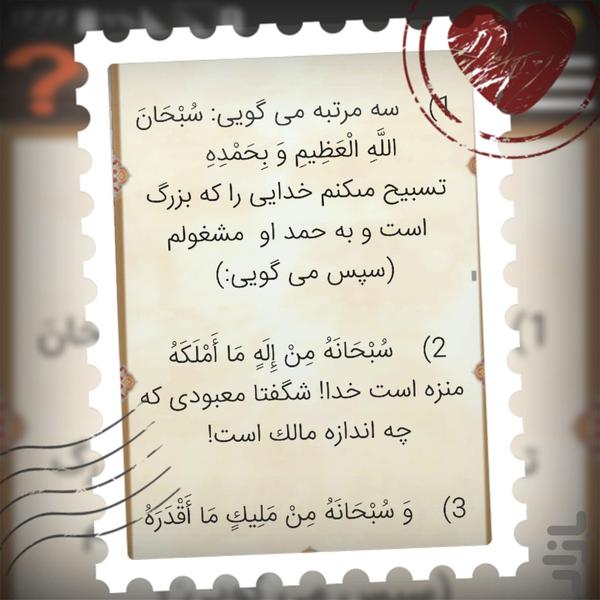 1) سه مرتبه می گویی: سُبْحَانَ
اللَّهِ الْعَظِيمِ وَ بِحَمْدِهِ
تسبیح میکنم خدایی را که بزرگ
است و به حمد او مشغولم
(سپس می گویی:)
2) سُبْحَانَهُ مِنْ إِلَهٍ مَا أَمْلَكَهُ
منزه است خدا! شگفتا معبودی که
چه اندازه مالك است!
3) وَ سُبْحَانَهُ مِنْ مَلِيكٍ مَا أَقْدَرَهُ
بازار